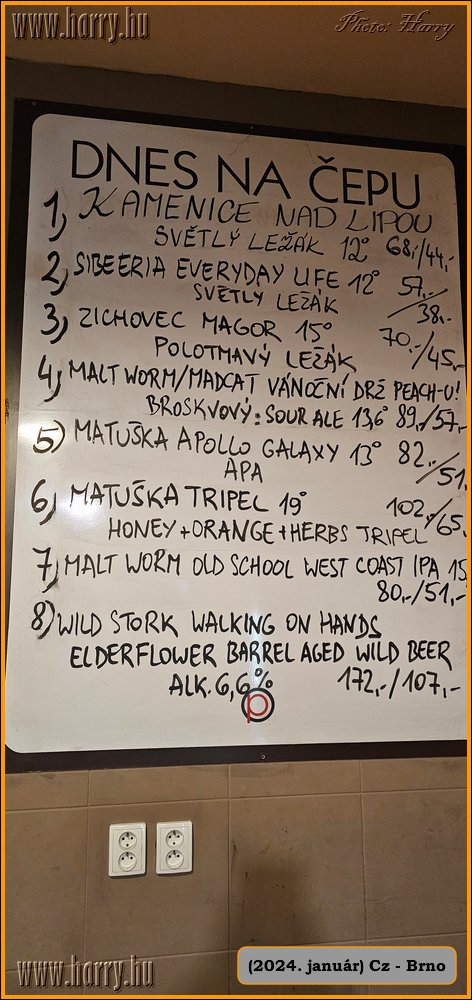 www.horry.hu
Photo: Harry
DNES NA ČEPU
1, KAMENICE NAD LIPOU
SVĚTLÝ LEŽÁK 12° 68,-/44,-
2, SIBEERIA EVERYDAY LIFE 12° 57,-
SVĚTLÝ LEŽÁK /38.-
3, ZICHOVEC MAGOR 15° 70,-/45,-
POLOTMAVÝ LEŽÁK
4, MALT WORM/MADCAT VÁNOČNÍ DRŽ PEACH-U!
BROSKVOVÝ: SOUR ALE 13,6° 89,-/57,-
5) MATUŠKA APOLLO GALAXY 13° 82,-
APA /51,
6, MATUŠKA TRIPEL 19° 102,-/65,
HONEY+ORANGE+HERBS TRIPEL
7) MALT WORM OLD SCHOOL WEST COAST IPA 15
80,-/51,-
8) WILD STORK WALKING ON HANDS
ELDERFLOWER BARREL AGED WILD BEER
ALK. 6,6% 172,-/107,-
P
www.horry.hu
(2024. január) Cz - Brno